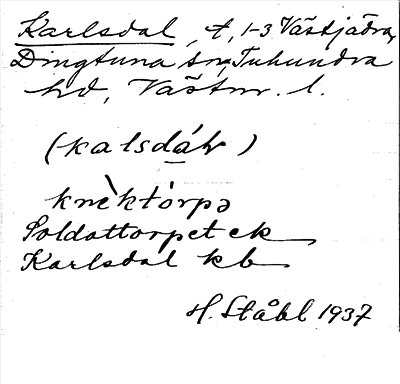 Karlsdal, t, 1-3 Västjädra,
Dingtuna sn, Tuhundra
hd, Västm. l.
(kalsdáɫ)
knèktórpə
Soldattorpet ek
Karlsdal kb
H. Ståhl 1937